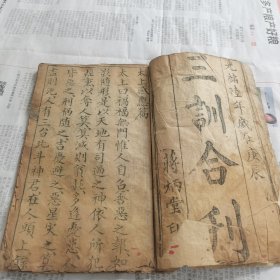 光緒陸年歲在庚辰
三訓合刊
蔣炳堂印
太上感應篇
太上曰禍福無門惟人自召善惡之報如
影隨形是以天地有司過之神依人所犯
輕重以奪人算算減則貧耗多逢憂患人
皆惡之刑禍隨之吉慶避之惡星災之算
盡則死又有三台北斗神君在人頭上錄